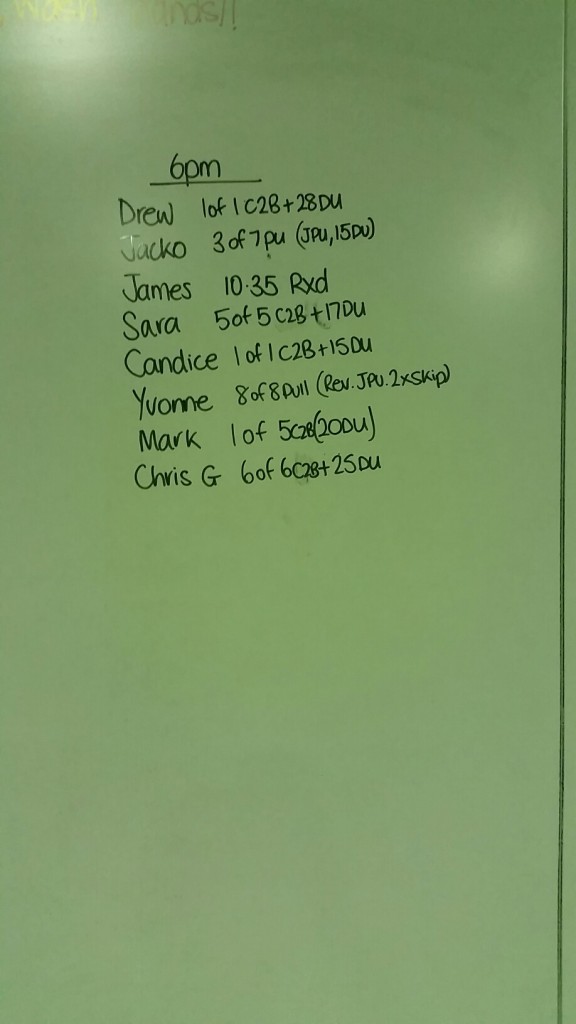 Wash Hands!!
6pm
Drew 1 of 1 C2B + 28DU
Jacko 3 of 7 PU (JPU, 15DU)
James 10.35 Rxd
Sara 5 of 5 C2B + 17DU
Candice 1 of 1 C2B + 15DU
Yvonne 8 of 8 Pull (Rev. JPU. 2xSkip)
Mark 1 of 5 C2B (20DU)
Chris G 6 of 6 C2B + 25DU